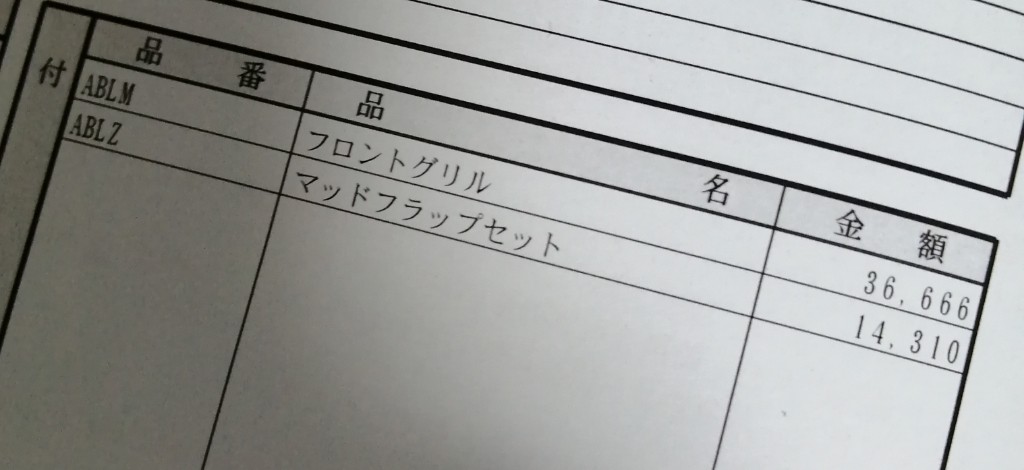 付
品番 品名 金額
ABLM フロントグリル 36,666
ABLZ マッドフラップセット 14,310